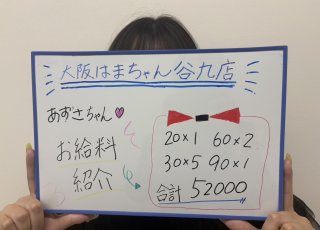 大阪はまちゃん谷九店
あずさちゃん
お給料
紹介
20×1 60×2
30×5 90×1
合計 52000